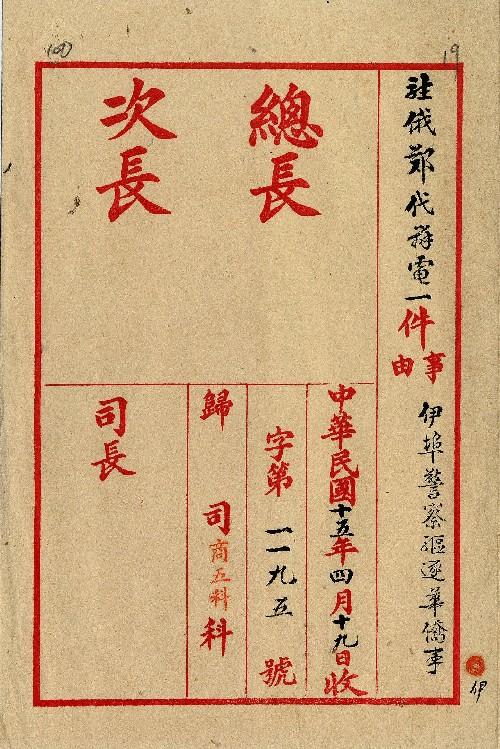 19
駐俄鄭代辦電一件
事由
伊埠警察驅逐華僑事
伊
總長
次長
中華民國十五年四月十九日收
字第一一九五號
歸 司商五科科
司長